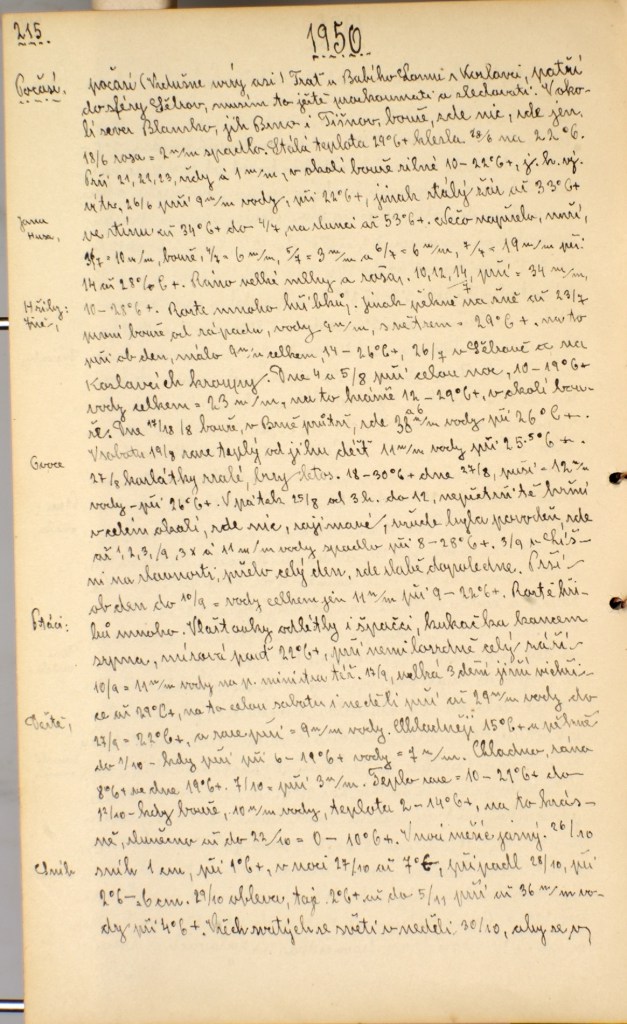 215.
1950
Počasí. počasí (Vzdušné víry asi! Trať u Babího Lomu s Korlavci, patří
do sféry Pětrov, musím to ještě prozkoumati a sledovati. V oko-
lí sever Blansko, jih Brno i Tišnov, bouře, zde nic, zde jen
18/6 rosa = 2 m/m spadlo. Stálá teplota 29°C+ klesla 28/6 na 22°C.
Prší 21, 22, 23, vždy á 1 m/m, v okolí bouře silné 10-22°C+, j. h. vý.
větr, 26/6 prší 9 m/m vody, při 22°C+, jinak stálý žár až 33°C+
Jana Husa, ve stínu až 34°C+ do 4/7 na slunci až 53°C+. Něco napršelo,
3/7 = 10 m/m, bouře, 4/7 = 6 m/m, 5/7 = 3 m/m a 6/7 = 6 m/m, 7/7 = 19 m/m při
14 až 28°C+. Ráno velké mlhy a rosa. 10, 12, 14, prší = 34 m/m,
Hřiby: 10-28°C+. Roste mnoho hříbků. Jinak pěkně na žně až 23/7
Žně, první bouře od západu, vody 9 m/m, s větrem = 29°C+. na to
prší ob den, málo 9 m/m celkem, 14-26°C+, 26/7 v a na
kroupy. Dne 4 a 5/8 prší celou noc, 10-19°C+
vody celkem = 23 m/m, na to krásně 12-29°C+, v okolí bou-
ře. Dne 17/18/8 bouře, v Brně průtrž, zde m/m vody při 26°C+.
V sobotu 19/8 zase teplý od jihu déšť 11 m/m vody při 25.5°C+.
Ovoce 27/8 karlátky zralé, brzy letos. 18-30°C+ dne 27/8, prší = 12 m/m
vody - při 26°C+. V pátek 25/8 od 3 h. do 12, nepřetržitě hřmí
v celém okolí, zde nic, zajímavé, všude byla povodeň, zde
až 1, 2, 3,/9, 3x á 11 m/m vody spadlo při 8-28°C+. 3/9 v
ni na slavnosti, pršelo celý den, zde slabě dopoledne. Prší
ob den do 10/9 = vody celkem jen 11 m/m při 9-22°C+. Roste hři-
Ptáci: bů mnoho. Vlaštovky odlétly i špačci, kukačka koncem
srpna, 22°C+, prší nemilosrdně celý září
10/9 = 11 m/m vody na též. 17/9, velká 3 denní jižní vichři-
ce až 29°C+, na to celou sobotu i neděli prší až 29 m/m vody do
Deště, 27/9 = 22°C+, a zase prší = 9 m/m vody. Chladněji 15°C+ a pěkně
do 1/10 - kdy prší při 6-19°C+ vody = 7 m/m. Chladno, rána
8°C+ ve dne 19°C+. 7/10 = prší 3 m/m. Teplo zase = 10-21°C+ do
12/10 - kdy bouře, 10 m/m vody, teplota 2-14°C+, na to krás-
ně, slunečno až do 22/10 = 0-10°C+. V noci měsíc jasný. 26/10
Sníh sníh 1 cm, při 1°C+, v noci 27/10 až 7°C, připadl 28/10, při
2°C-=6 cm. 29/10 obleva, taje 2°C+ až do 5/11 prší až 36 m/m vo-
dy při 4°C+. Všech svatých se světí v neděli 30/10, aby se v